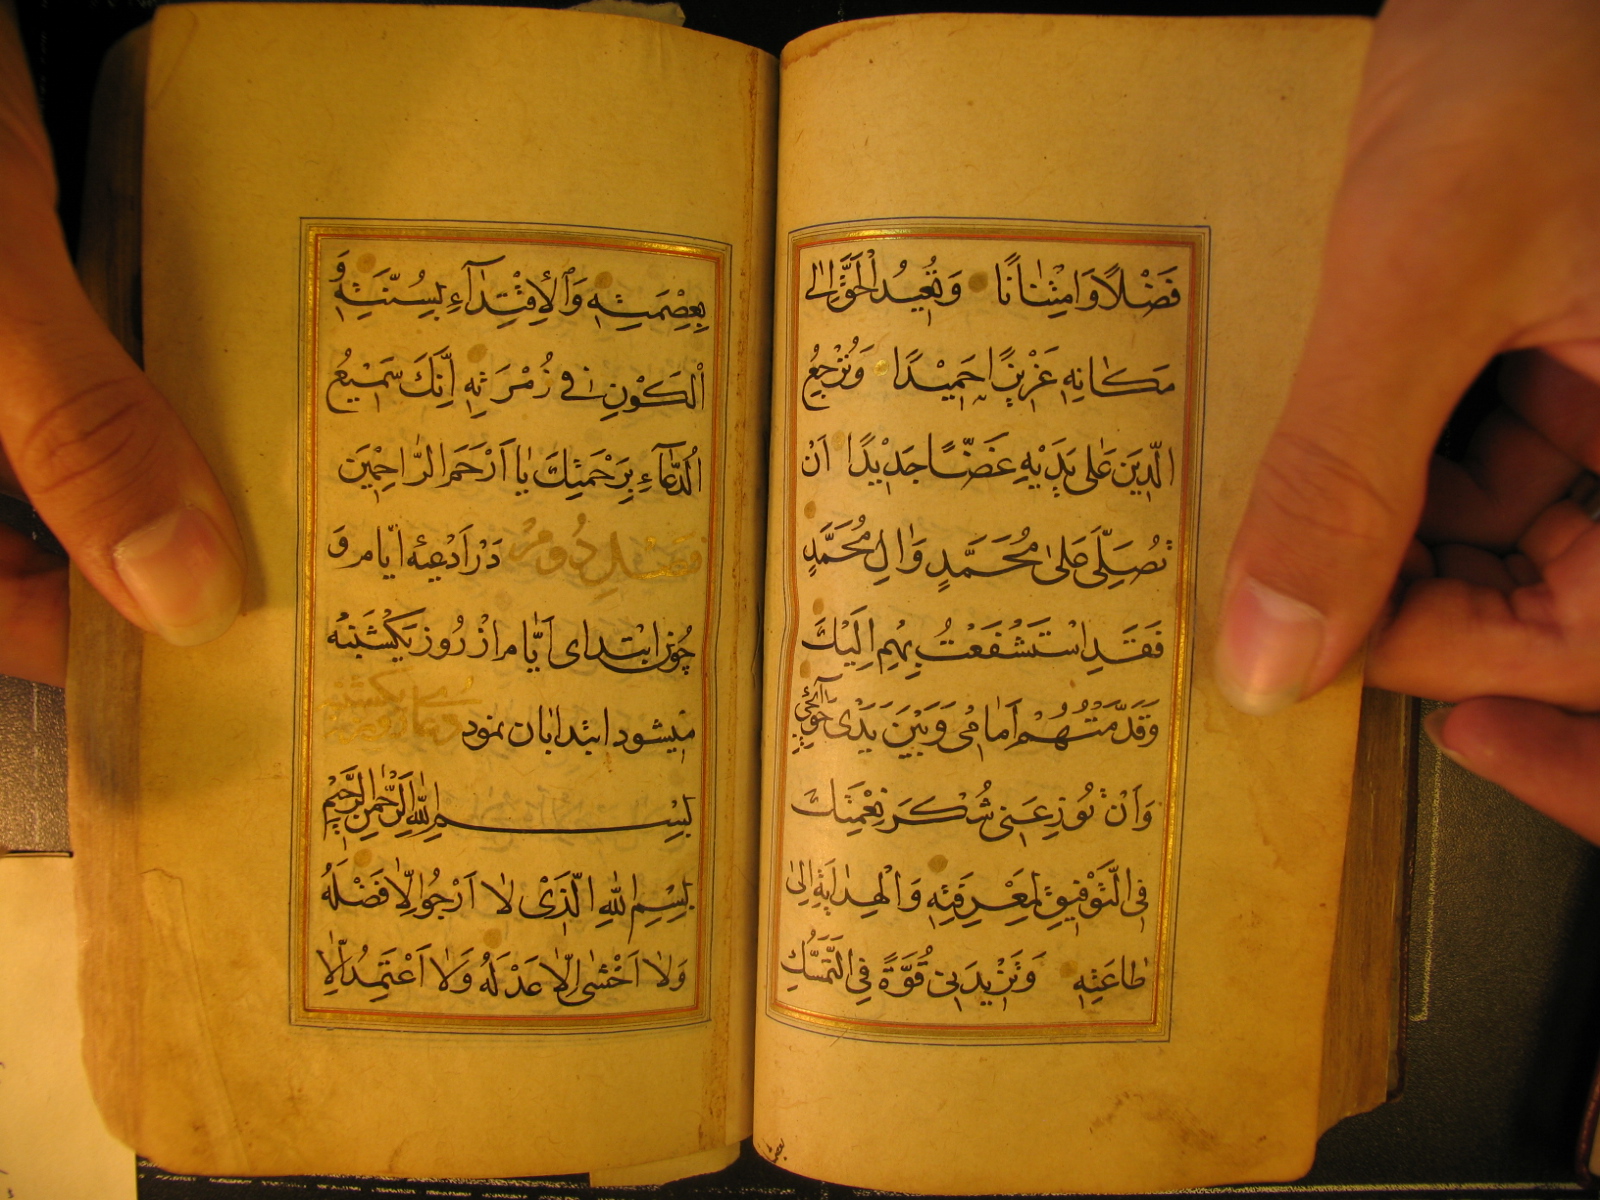 فَضْلًا وَامْتِنَانًا وَتُعِيدُ الْحَقَّ إِلَى
مَكَانِهِ عَزِيزًا حَمِيدًا وَتُرْجِعُ
الدِّينَ عَلَى يَدَيْهِ غَضًّا جَدِيدًا اَنْ
تُصَلِّىَ عَلَى مُحَمَّدٍ وَالِ مُحَمَّدٍ
فَقَدِ اسْتَشْفَعْتُ بِهِمْ اِلَيْكَ
وَقَدَّمْتُهُمْ اَمَامِى وَبَيْنَ يَدَىْ حَوَآئِجِى
وَاَنْ تُوزِعَنِى شُكْرَ نِعْمَتِكَ
فِى التَّوْفِيقِ لِمَعْرِفَتِهِ وَالْهِدَايَةِ اِلَى
طَاعَتِهِ وَتَزِيدَنِى قُوَّةً فِى التَّمَسُّكِ
بعصمته
بِعِصْمَتِهِ وَالْاِقْتِدَآءِ بِسُنَّتِهِ وَ
الْكَوْنِ فِى زُمْرَتِهِ اِنَّكَ سَمِيعُ
الدُّعَآءِ بِرَحْمَتِكَ يَا اَرْحَمَ الرَّاحِمِينَ
فصل دومر دَرْ اَدْعِيَه اَيّام وَ
چُون اِبْتِداى اَيّام اَزْ رُوز يَكْشَنْبَه
ميشود ابتدا بان نمود دعاء روز يكشنبه
بِسْمِ اللهِ الرَّحْمٰنِ الرَّحِيْمِ
بِسْمِ اللهِ الَّذِىْ لَا اَرْجُو اِلَّا فَضْلَهُ
وَلَا اَخْشَى اِلَّا عَدْلَهُ وَلَا اَعْتَمِدُ اِلَّا